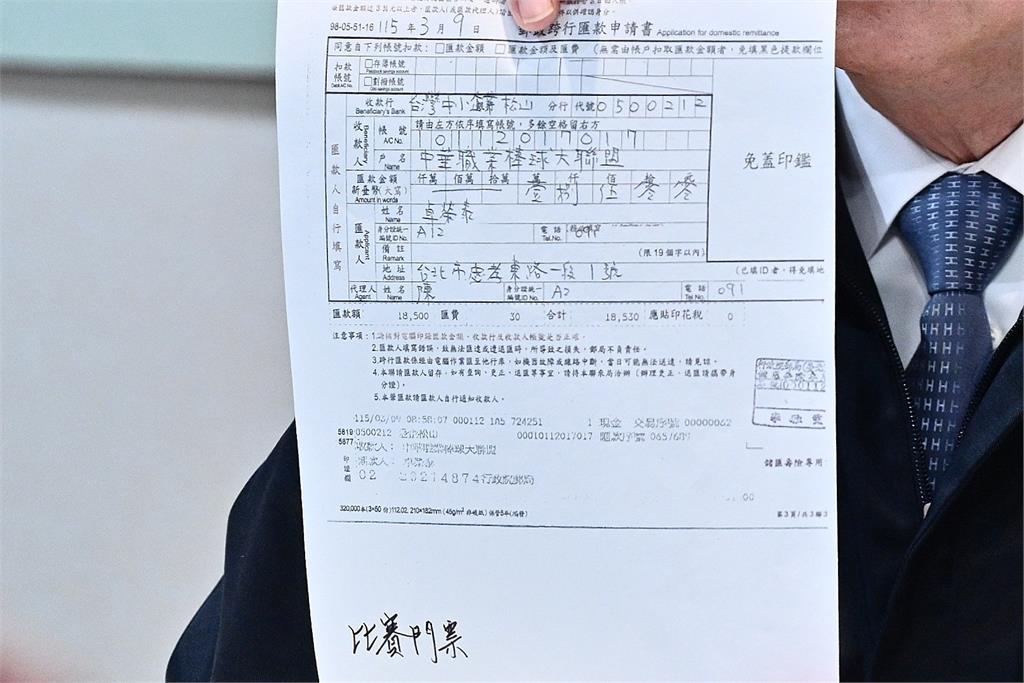 98-05-51-16 115年3月9日 郵政跨行匯款申請書 Application for domestic remittance
同意自下列帳號扣款：□匯款金額 □匯款金額及匯費（無需由帳戶扣取匯款金額者，免填黑色提款欄位
扣款帳號 Debit A/C No. □存簿帳號 Passbook savings account
□劃撥帳號 Giro savings account
匯款人自行填寫
收款行 Beneficiary's Bank 台灣中小企業松山 分行 代號 0500212
收款人 Beneficiary 帳號 A/C No. 請由左方依序填寫帳號，多餘空格留右方
10112017017
戶名 Name 中華職業棒球大聯盟
免蓋印鑑
匯款金額 新臺幣(大寫) Amount in words 仟萬 佰萬 拾萬 萬 仟 佰 拾 元
壹 捌 伍 零 零
匯款人 Applicant 姓名 Name 卓榮泰
身分證統一編號ID No. A12 電話 Tel.No.
備註 Remark （限19個字以內）
地址 Address 台北市忠孝東路一段1號 （已填ID者，得免填地
代理人 Agent 姓名 Name 陳 身分證統一編號ID No. A2 電話 Tel.No. 091
匯款額 18,500 匯費 30 合計 18,530 應貼印花稅 0
注意事項：1.請核對電腦印錄匯款金額、收款行及收款人帳號是否正確。
2.匯款人填寫錯誤，致無法匯達或遲退匯時，所導致之損失，郵局不負責任。
3.跨行匯款係經由電腦作業匯至他行庫，如機器故障或線路中斷，當日可能無法送達，請見諒。
4.本聯請匯款人留存，如有查詢、更正、退匯等事宜，請持本聯來局洽辦（辦理更正、退匯請攜帶身分證）。
5.本筆匯款請匯款人自行通知收款人。
115/03/09 08:58:07 000112 1A5 724251 1 現金 交易序號 00000062
5819 0500212 00010112017017 匯款序號
5677 收款人：中華職業棒球大聯盟
匯款人：卓榮泰
印證欄 02 行政院郵局
儲匯壽險專用
320,000本(3×50份)112.02. 210×182mm (45g/m² 非碳紙) 保管5年
第3頁/共3聯
比賽門票